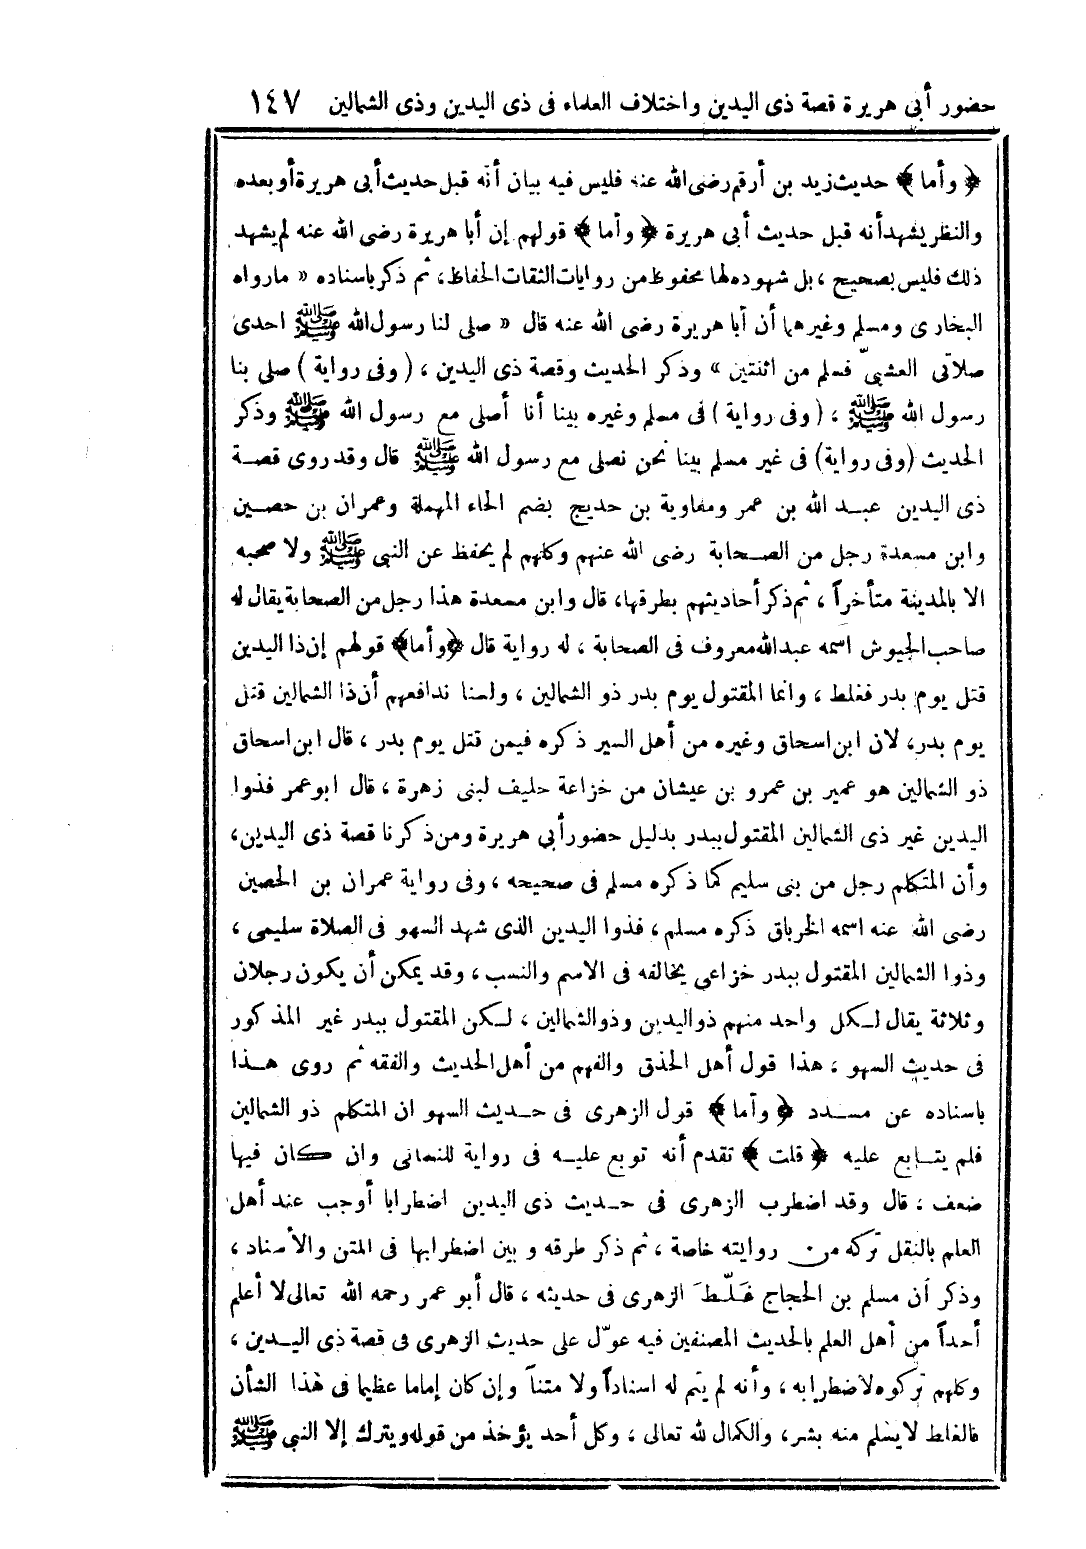 حضور أبى هريرة قصة ذى اليدين واختلاف العلماء فى ذى اليدين وذى الشمالين ١٤٧
﴿ وأما ﴾ حديث زيد بن أرقم رضى الله عنه فليس فيه بيان أنه قبل حديث أبى هريرة أو بعده
والنظر يشهد أنه قبل حديث أبى هريرة ﴿ وأما ﴾ قولهم إن أبا هريرة رضى الله عنه لم يشهد
ذلك فليس بصحيح ، بل شهوده لها محفوظ من روايات الثقات الحفاظ، ثم ذكر باسناده « مارواه
البخارى ومسلم وغيرهما أن أبا هريرة رضى الله عنه قال « صلى لنا رسول الله ﷺ احدى
صلاتى العشىّ فسلم من اثنتين » وذكر الحديث وقصة ذى اليدين ، ( وفى رواية ) صلى بنا
رسول الله ﷺ ، ( وفى رواية ) فى مسلم وغيره بينا أنا أصلى مع رسول الله ﷺ وذكر
الحديث (وفى رواية) فى غير مسلم بينا نحن نصلى مع رسول الله ﷺ قال وقد روى قصة
ذى اليدين عبد الله بن عمر ومعاوية بن حديج بضم الحاء المهملة وعمران بن حصين
وابن مسعدة رجل من الصحابة رضى الله عنهم وكلهم لم يحفظ عن النبى ﷺ ولا صحبه
الا بالمدينة متأخراً ، ثم ذكر أحاديثهم بطرقها، قال وابن مسعدة هذا رجل من الصحابة يقال له
صاحب الجيوش اسمه عبد الله معروف فى الصحابة ، له رواية قال ﴿وأما﴾ قولهم إن ذا اليدين
قتل يوم بدر فغلط ، وانما المقتول يوم بدر ذو الشمالين ، ولسنا ندافعهم أن ذا الشمالين قتل
يوم بدر، لان ابن اسحاق وغيره من أهل السير ذكره فيمن قتل يوم بدر ، قال ابن اسحاق
ذو الشمالين هو عمير بن عمرو بن عيشان من خزاعة حليف لبنى زهرة ، قال ابو عمر فذوا
اليدين غير ذى الشمالين المقتول ببدر بدليل حضور أبى هريرة ومن ذكرنا قصة ذى اليدين،
وأن المتكلم رجل من بنى سليم كما ذكره مسلم فى صحيحه ، وفى رواية عمران بن الحصين
رضى الله عنه اسمه الخرباق ذكره مسلم ، فذوا اليدين الذى شهد السهو فى الصلاة سليمى ،
وذوا الشمالين المقتول ببدر خزاعى يخالفه فى الاسم والنسب ، وقد يمكن أن يكون رجلان
وثلاثة يقال لكل واحد منهم ذو اليدين وذو الشمالين ، لكن المقتول ببدر غير المذكور
فى حديث السهو ، هذا قول أهل الحذق والفهم من أهل الحديث والفقه ثم روى هذا
باسناده عن مسدد ﴿ وأما ﴾ قول الزهرى فى حديث السهو ان المتكلم ذو الشمالين
فلم يتابع عليه ﴿ قلت ﴾ تقدم أنه توبع عليه فى رواية للنسائى وان كان فيها
ضعف ، قال وقد اضطرب الزهرى فى حديث ذى اليدين اضطرابا أوجب عند أهل
العلم بالنقل تركه من روايته خاصة ، ثم ذكر طرقه وبين اضطرابها فى المتن والأسناد ،
وذكر أن مسلم بن الحجاج غَلَّطَ الزهرى فى حديثه ، قال أبو عمر رحمه الله تعالى لا أعلم
أحداً من أهل العلم بالحديث المصنفين فيه عوّل على حديث الزهرى فى قصة ذى اليدين ،
وكلهم تركوه لاضطرابه ، وأنه لم يتم له اسناداً ولا متناً وإن كان إماما عظيما فى هذا الشأن
فالغلط لا يسلم منه بشر، والكمال لله تعالى ، وكل أحد يؤخذ من قوله ويترك إلا النبى ﷺ